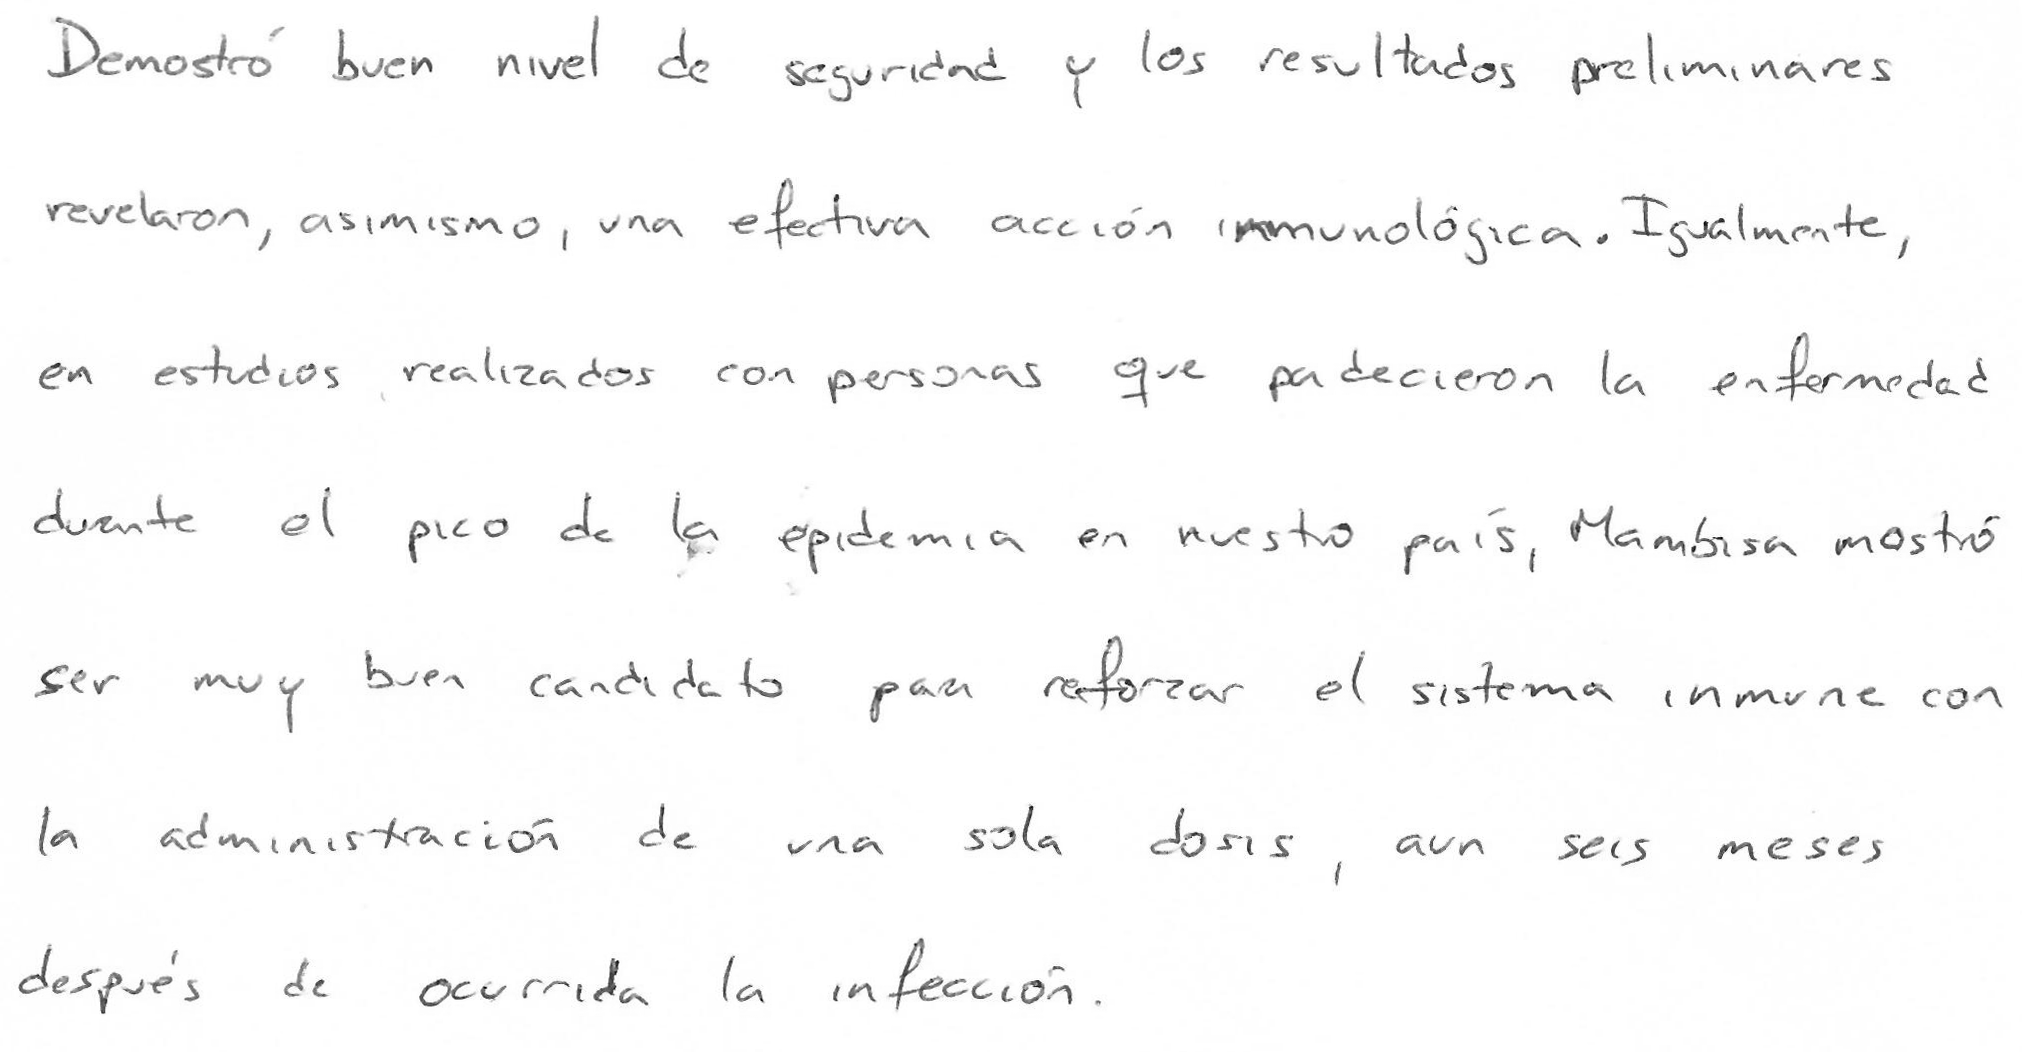 Demostró buen nivel de seguridad y los resultados preliminares
revelaron, asimismo, una efectiva acción inmunológica. Igualmente,
en estudios realizados con personas que padecieron la enfermedad
durante el pico de la epidemia en nuestro país, Mambisa mostró
ser muy buen candidato para reforzar el sistema inmune con
la administración de una sola dosis, aun seis meses
después de ocurrida la infección.